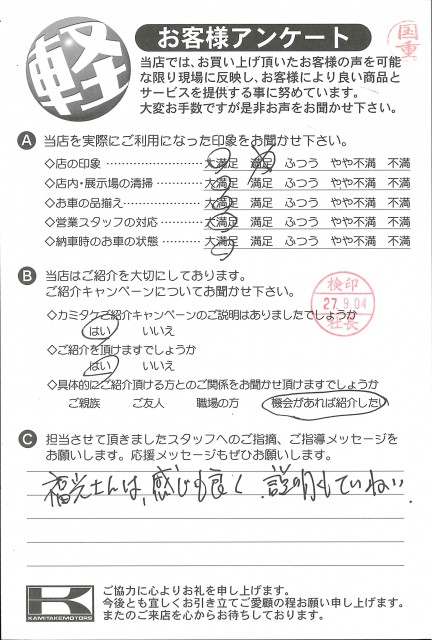 軽
お客様アンケート
国重
当店では、お買い上げ頂いたお客様の声を可能
な限り現場に反映し、お客様により良い商品と
サービスを提供する事に努めています。
大変お手数ですが是非お声をお聞かせ下さい。
A 当店を実際にご利用になった印象をお聞かせ下さい。
◇店の印象 大満足 満足 ふつう やや不満 不満
◇店内・展示場の清掃 大満足 満足 ふつう やや不満 不満
◇お車の品揃え 大満足 満足 ふつう やや不満 不満
◇営業スタッフの対応 大満足 満足 ふつう やや不満 不満
◇納車時のお車の状態 大満足 満足 ふつう やや不満 不満
B 当店はご紹介を大切にしております。
ご紹介キャンペーンについてお聞かせ下さい。
検印
27.9.04
社長
◇カミタケご紹介キャンペーンのご説明はありましたでしょうか
はい いいえ
◇ご紹介を頂けますでしょうか
はい いいえ
◇具体的にご紹介頂ける方とのご関係をお聞かせ頂けますでしょうか
ご親族 ご友人 職場の方 機会があれば紹介したい
C 担当させて頂きましたスタッフへのご指摘、ご指導メッセージを
お願いします。応援メッセージもぜひお願いします。
さんは、感じも良く、説明もていねい
K
KAMITAKEMOTORS
ご協力に心よりお礼を申し上げます。
今後とも宜しくお引き立てご愛顧の程お願い申し上げます。
またのご来店を心からお待ちしております。